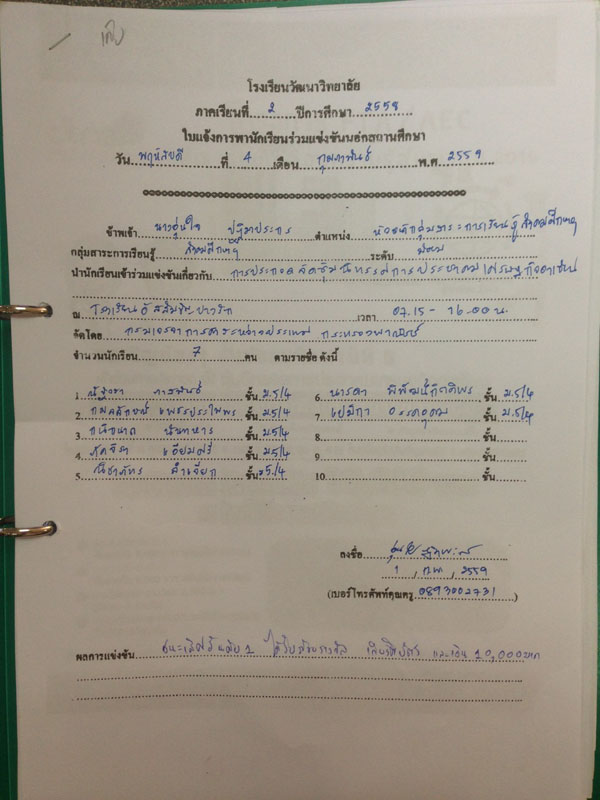 เติง
โรงเรียนวัฒนาวิทยาลัย
ภาคเรียนที่ 2 ปีการศึกษา 2558
ใบแจ้งการพานักเรียนร่วมแข่งขันนอกสถานศึกษา
วัน พฤหัสบดี ที่ 4 เดือน กุมภาพันธ์ พ.ศ. 2559
ข้าพเจ้า นางอุ่นใจ ปฏิมาประกร ตำแหน่ง หัวหน้ากลุ่มสาระการเรียนรู้ สังคมศึกษาฯ
กลุ่มสาระการเรียนรู้ สังคมศึกษาฯ ระดับ มัธยม
นำนักเรียนเข้าร่วมแข่งขันเกี่ยวกับ การประกวดจัดซุ้มนิทรรศการประชาคมเศรษฐกิจอาเซียน
ณ โรงเรียนอัสสัมชัญบางรัก เวลา 07.15 - 16.00 น.
จัดโดย กรมเจรจาการค้าระหว่างประเทศ กระทรวงพาณิชย์
จำนวนนักเรียน 7 คน ตามรายชื่อ ดังนี้
1. ณัฐชา ชั้น ม.5/4 6. นารดา พิพัฒน์กิตติพร ชั้น ม.5/4
2. กมลลักษณ์ แพรประไพพร ชั้น ม.5/4 7. เปมิกา ชั้น ม.5/4
3. ชนิชนาถ นันทหาร ชั้น ม.5/4 8. ชั้น
4. ภัคจิรา เอี่ยมศรี ชั้น ม.5/4 9. ชั้น
5. ณิชาภัทร สำเจียก ชั้น ม.5/4 10. ชั้น
ลงชื่อ
1 , ก.พ. , 2559
(เบอร์โทรศัพท์คุณครู 0893002731)
ผลการแข่งขัน ชนะเลิศอันดับ 1 ได้รับถ้วยรางวัล เกียรติบัตร และเงิน 10,000 บาท